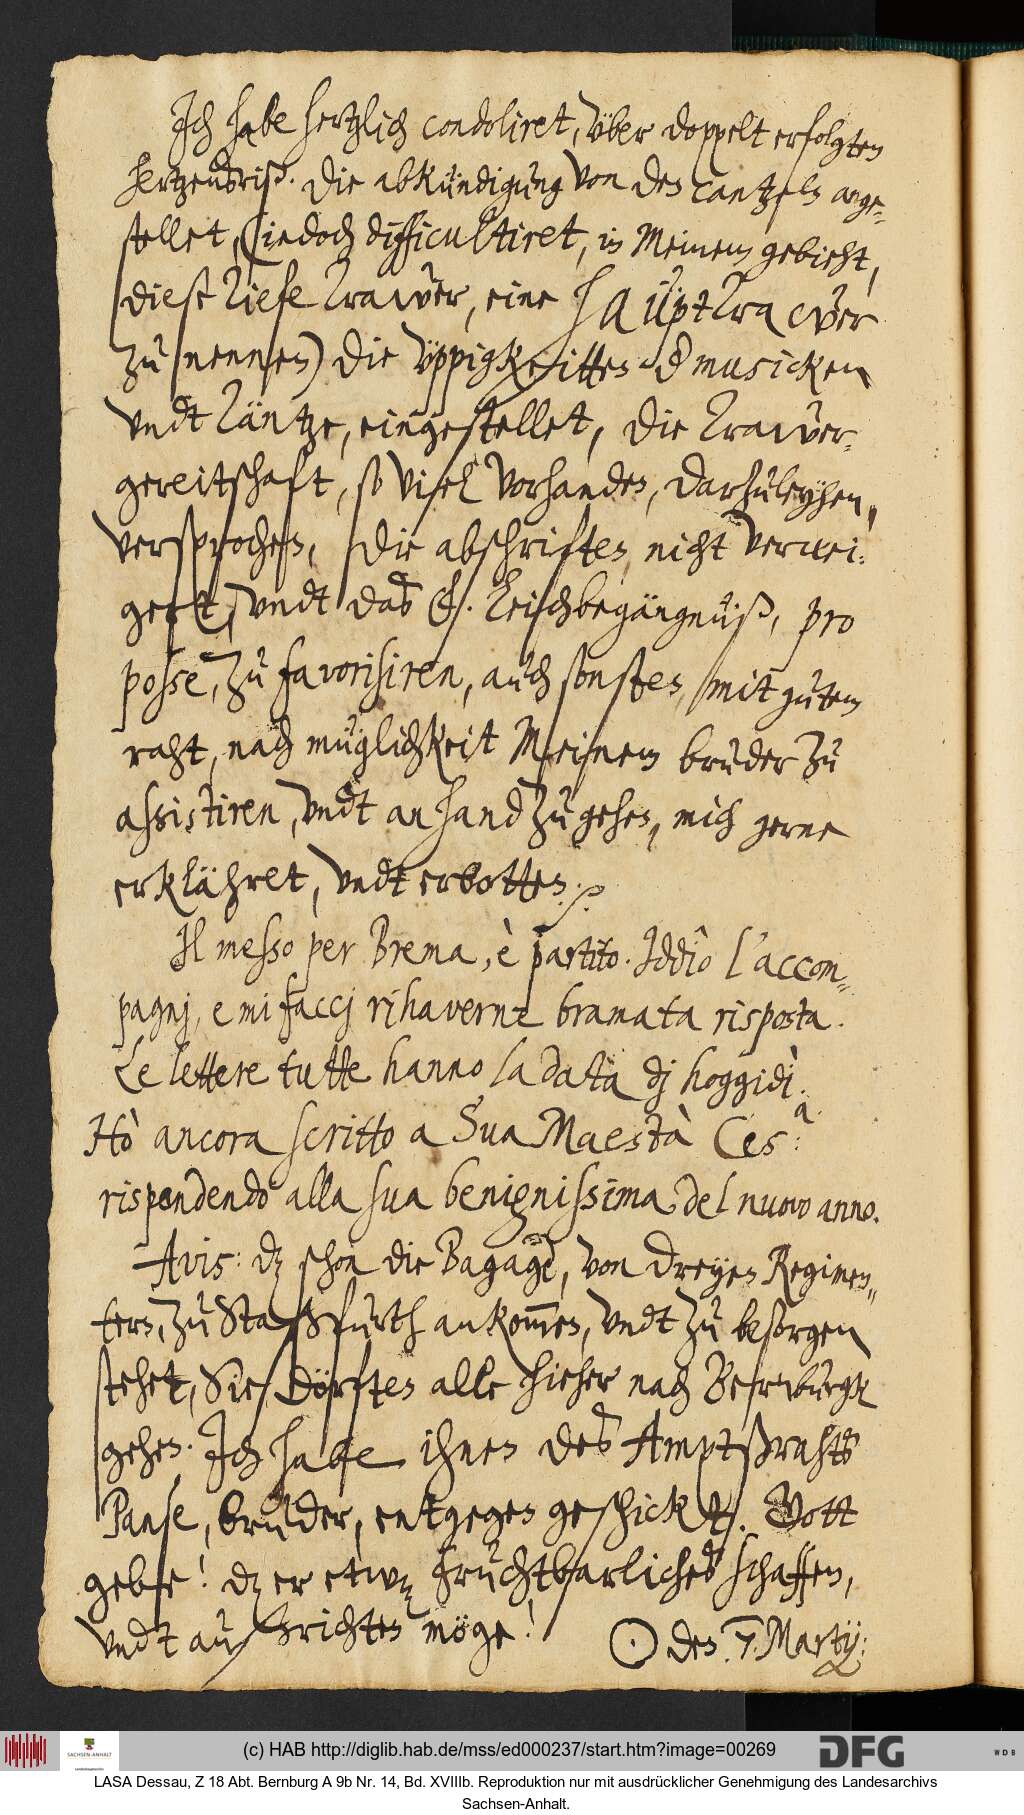 Ich habe hertzlich condoliret, über doppelt erfolgten
hertzensriß. Die abkündigung von den cantzeln ange-
stellet, (iedoch difficultiret, in Meinem gebieht,
diese tiefe trawer, eine haupttrawer
zu nennen) die üppigkeitten der musicken
undt täntze, eingestellet, die trawer-
gereitschaft, so viel vorhanden, darzuleyhen,
versprochen, die abschriften nicht verwei-
gert, undt das Leichbegängnüß, pro
posse, zu favorisiren, auch sonsten, mit gutem
raht, nach müglichkeit Meinem bruder zu
assistiren, undt an hand zu gehen, mich gerne
erklähret, undt erbotten.
Il messo per Brema, è partito. Iddîo l'accom-
pagnj, e mi faccj rihaverne bramata risposta.
Le lettere tutte hanno la data dj hoggidì.
Hò ancora scritto a Sua Maestà Ces:a
rispondendo alla sua benignissima del nuovo anno.
Avis: dz schon die Bagage, von dreyen Regimen-
tern, zu Staßfurth ankommen, undt zu besorgen
stehet, Sie dörften alle hieher nach Bernburgk
gehen. Ich habe ihnen des Amptßrahts
Panse, bruder, entgegen geschickt. Gott
gebe! dz er etwz fruchtbarliches schaffen,
undt außrichten möge!
☉ den 7. Martij:
(c) HAB http://diglib.hab.de/mss/ed000237/start.htm?image=00269
SACHSEN-ANHALT
DFG
WDB
LASA Dessau, Z 18 Abt. Bernburg A 9b Nr. 14, Bd. XVIIIb. Reproduktion nur mit ausdrücklicher Genehmigung des Landesarchivs
Sachsen-Anhalt.